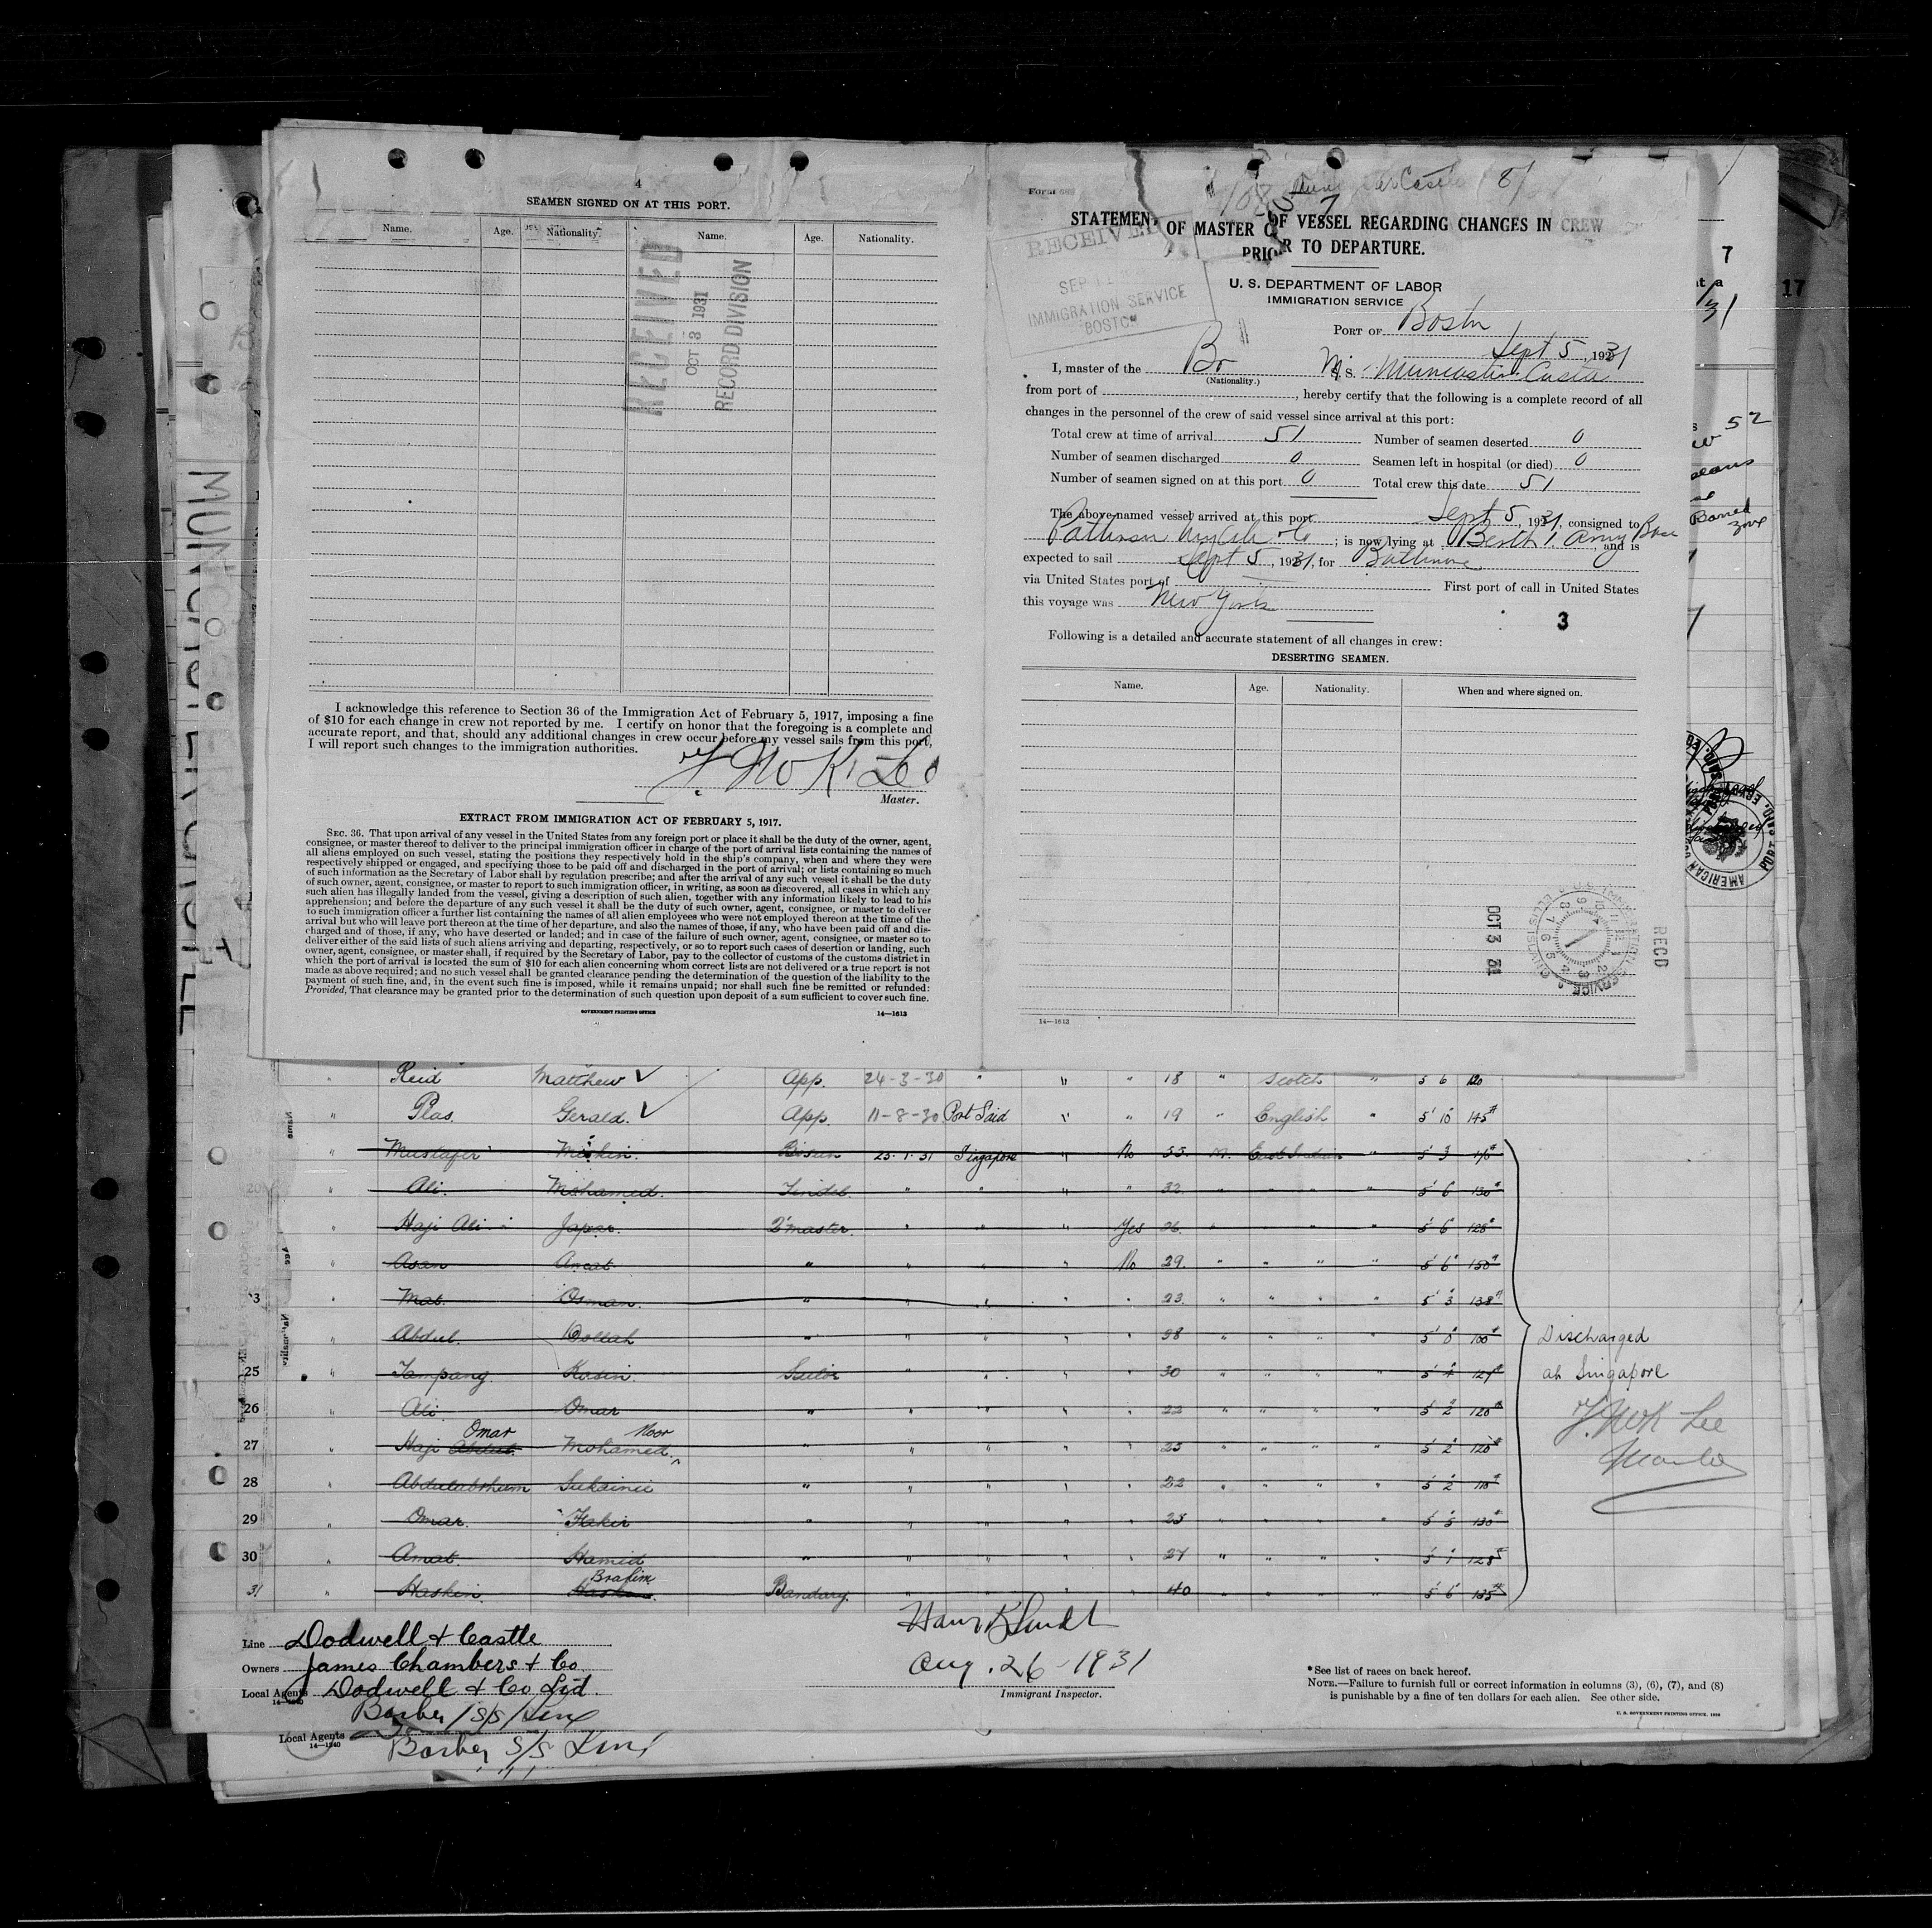 4
SEAMEN SIGNED ON AT THIS PORT.
Name. Age. Nationality. Name. Age. Nationality.
RECEIVED
OCT 3 1931
RECORD DIVISION
I acknowledge this reference to Section 36 of the Immigration Act of February 5, 1917, imposing a fine
of $10 for each change in crew not reported by me. I certify on honor that the foregoing is a complete and
accurate report, and that, should any additional changes in crew occur before my vessel sails from this port,
I will report such changes to the immigration authorities.
Master.
EXTRACT FROM IMMIGRATION ACT OF FEBRUARY 5, 1917.
SEC. 36. That upon arrival of any vessel in the United States from any foreign port or place it shall be the duty of the owner, agent,
consignee, or master thereof to deliver to the principal immigration officer in charge of the port of arrival lists containing the names of
all aliens employed on such vessel, stating the positions they respectively hold in the ship's company, when and where they were
respectively shipped or engaged, and specifying those to be paid off and discharged in the port of arrival; or lists containing so much
of such information as the Secretary of Labor shall by regulation prescribe; and after the arrival of any such vessel it shall be the duty
of such owner, agent, consignee, or master to report to such immigration officer, in writing, as soon as discovered, all cases in which any
such alien has illegally landed from the vessel, giving a description of such alien, together with any information likely to lead to his
apprehension; and before the departure of any such vessel it shall be the duty of such owner, agent, consignee, or master to deliver
to such immigration officer a further list containing the names of all alien employees who were not employed thereon at the time of the
arrival but who will leave port thereon at the time of her departure, and also the names of those, if any, who have been paid off and dis-
charged and of those, if any, who have deserted or landed; and in case of the failure of such owner, agent, consignee, or master so to
deliver either of the said lists of such aliens arriving and departing, respectively, or so to report such cases of desertion or landing, such
owner, agent, consignee, or master shall, if required by the Secretary of Labor, pay to the collector of customs of the customs district in
which the port of arrival is located the sum of $10 for each alien concerning whom correct lists are not delivered or a true report is not
made as above required; and no such vessel shall be granted clearance pending the determination of the question of the liability to the
payment of such fine, and, in the event such fine is imposed, while it remains unpaid; nor shall such fine be remitted or refunded:
Provided, That clearance may be granted prior to the determination of such question upon deposit of a sum sufficient to cover such fine.
GOVERNMENT PRINTING OFFICE 14—1613
STATEMENT OF MASTER OF VESSEL REGARDING CHANGES IN CREW
PRIOR TO DEPARTURE.
RECEIVED
SEP 11
IMMIGRATION SERVICE
BOSTON
U. S. DEPARTMENT OF LABOR
IMMIGRATION SERVICE
PORT OF Boston
Sept 5, 1931
I, master of the Br M.S. Muncaster Castle
(Nationality.)
from port of , hereby certify that the following is a complete record of all
changes in the personnel of the crew of said vessel since arrival at this port:
Total crew at time of arrival 51 Number of seamen deserted 0
Number of seamen discharged 0 Seamen left in hospital (or died) 0
Number of seamen signed on at this port 0 Total crew this date 51
The above-named vessel arrived at this port Sept 5, 1931, consigned to
Patterson Wylde & Co ; is now lying at Berth 1 Army Base, and is
expected to sail Sept 5, 1931, for Baltimore
via United States port of First port of call in United States
this voyage was New York
3
Following is a detailed and accurate statement of all changes in crew:
DESERTING SEAMEN.
Name. Age. Nationality. When and where signed on.
OCT 3 31
RECD
14—1613
Reid Matthew App. 24-3-30 " " " 18 " Scotch " 5 6 120
Plas. Gerald. App. 11-8-30 Port Said " " 19 " English " 5' 10" 145#
Mustafir Miskin. Bosun 25.1.31 Singapore " No 55. M. East Indian " 5 3
Ali. Mohamed. Tindel. " " " " 32 " " " " 5' 6 130#
Haji Ali Japar. Q'master. " " Yes 26. " " " 5' 6" 128#
Asan Amat. " " " " No 29. " " " " 5' 6" 150#
23 Mat. Osman. " " " " " 23. " " " " 5' 3" 138#
Abdul. " " " " " 38 " " " " 5' 0" 100#
25 Tampang. Kasin. Sailor " " " " 30 " " " " 5' 4" 127#
26 Ali Omar " " " " " 22 " " " " 5' 2" 120#
27 Haji Abdul. Omar Mohamed. Noor " " " " " 25 " " " " 5' 2" 120#
28 Sukaimi " " " " " 22 " " " " 5' 2" 110#
29 Omar. Fakir " " " " " 25 " " " " 5' 5" 130#
30 Amat. Hamid " " " " " 27 " " " " 5' 1" 128#
31 Haskin. Brahim Bandary. " " " " 40 " " " " 5' 6" 135#
Discharged
at Singapore
Line Dodwell & Castle
Owners James Chambers & Co
Local Agents Dodwell & Co Ltd.
14—1240
Barber S/S Line
Local Agents
14—1240
Barber S/S Line
Aug. 26-1931
Immigrant Inspector.
*See list of races on back hereof.
NOTE.—Failure to furnish full or correct information in columns (3), (6), (7), and (8)
is punishable by a fine of ten dollars for each alien. See other side.
7
17
52
Barred
zone